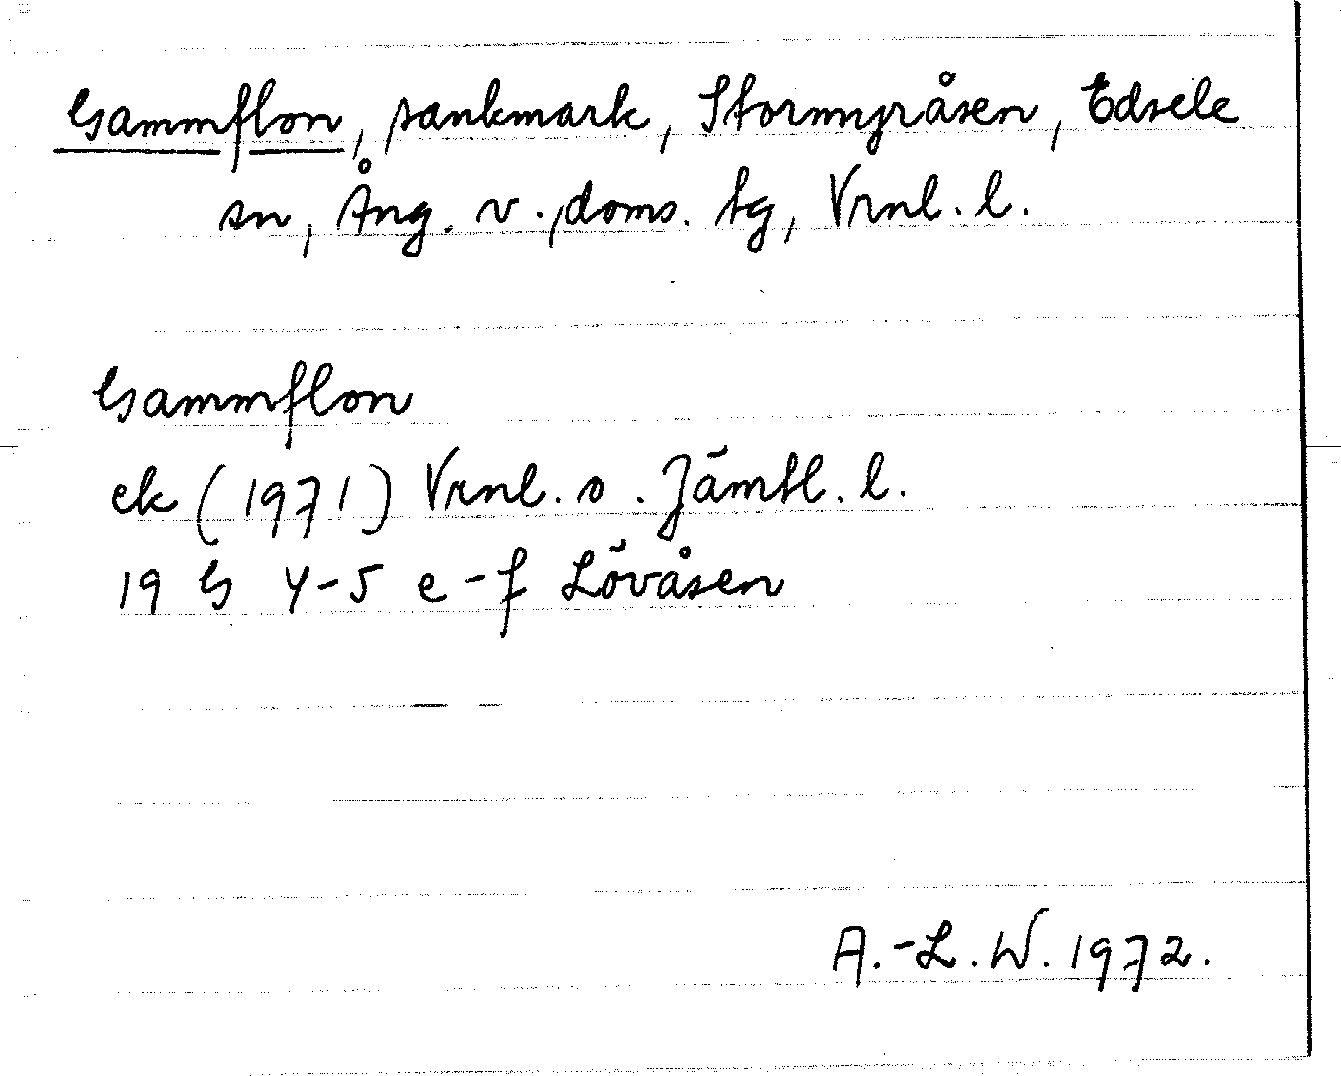 Gammflon, sankmark, Stormyråsen, Edsele
sn, Ång. v. doms. tg, Vrnl. l.
Gammflon
ek (1971) Vrnl. o. Jämtl. l.
19 G 4-5 e-f Lövåsen
A.-L. W. 1972.